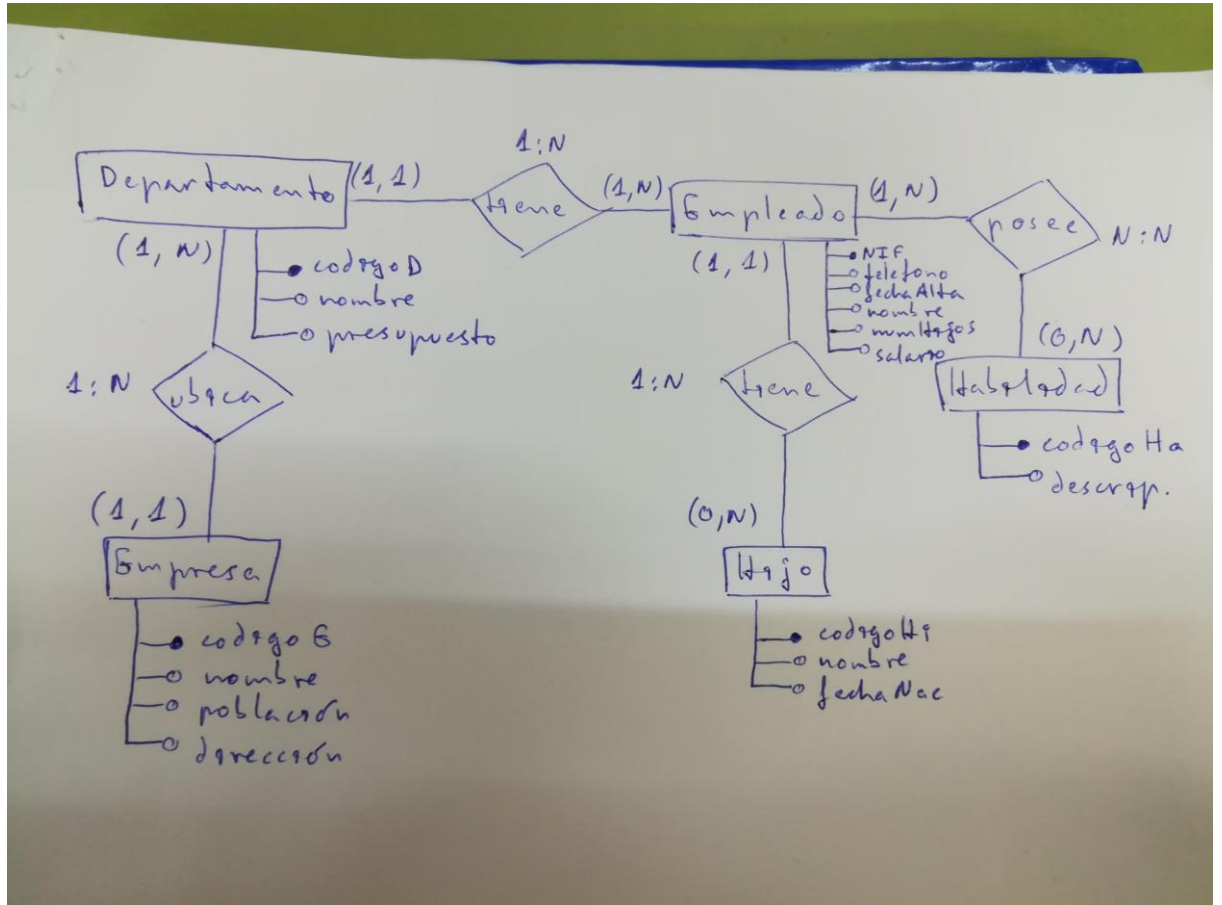 1:N
Departamento (1,1) tiene (1,N) Empleado (1,N) posee N:N
(1,N)
codigoD
nombre
presupuesto
(1,1)
NIF
telefono
fechaAlta
nombre
numHijos
salario
(0,N)
1:N ubica
1:N tiene
Habilidad
codigoHa
descrip.
(1,1)
Empresa
codigoE
nombre
población
dirección
(0,N)
Hijo
codigoHi
nombre
fechaNac